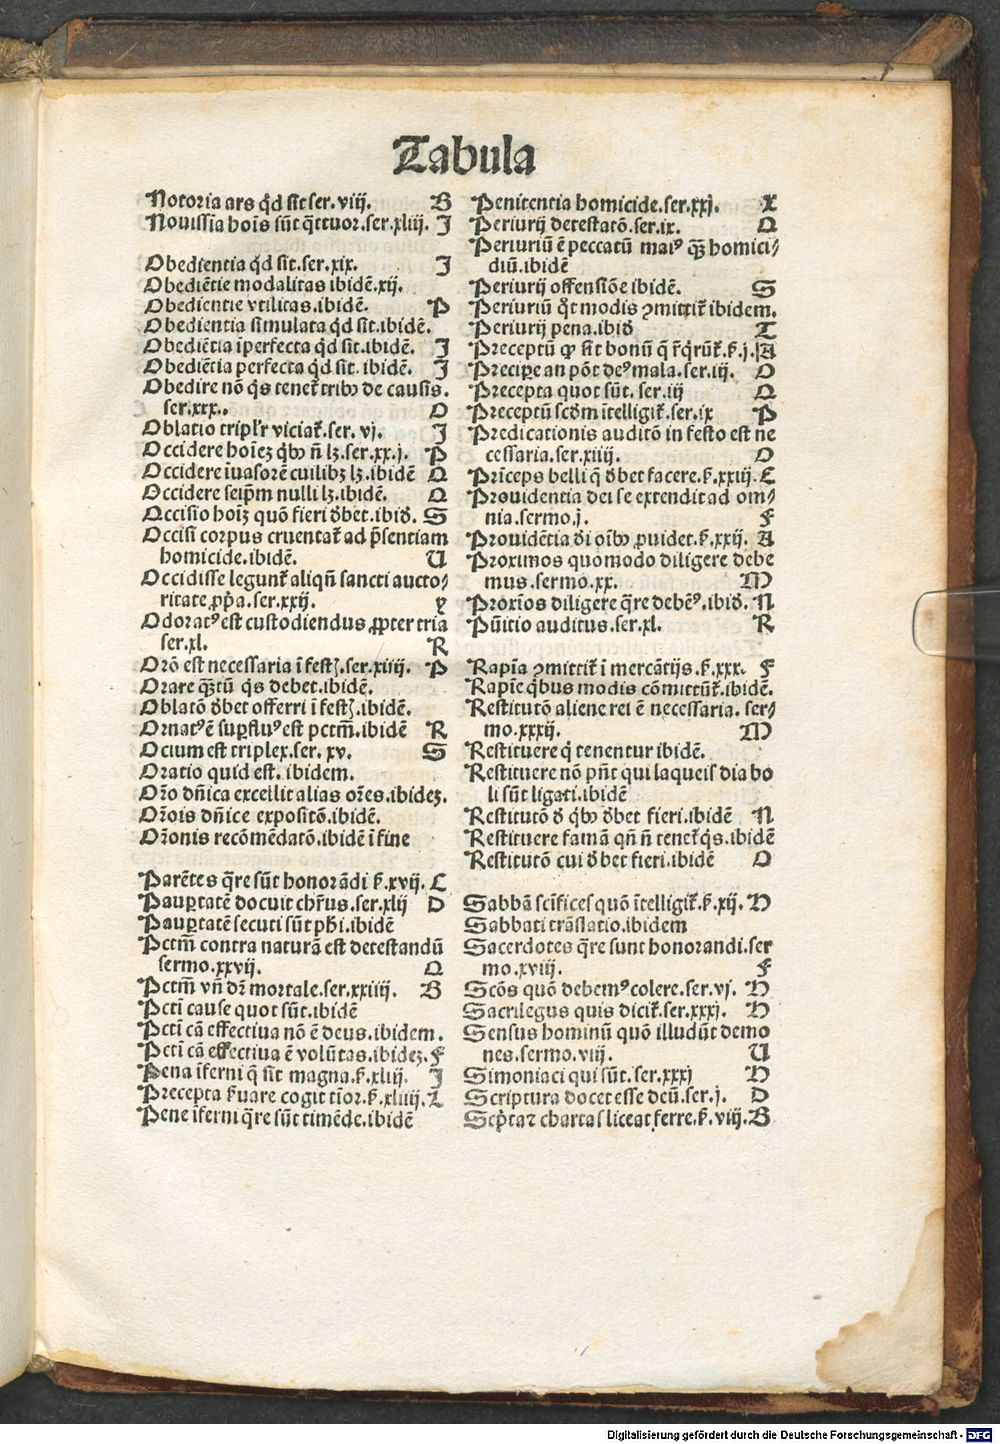 Tabula
Notoria ars qd̄ sit ser. viij. B
Nouissīa hoīs sūt q̄ttuor.ser.xliij. J
Obedientia qd̄ sit.ser.xix. J
Obediētie modalitas ibidē.xij.
Obedientie vtilitas.ibidē. P
Obedientia simulata qd̄ sit.ibidē.
Obediētia īperfecta qd̄ sit.ibidē. J
Obediētia perfecta qd̄ sit. ibidē. J
Obedire nō q̄s tenet̄ tribꝰ de causis.
ser.xxx.. O
Oblatio tripl'r viciat̄.ser. vj. J
Occidere hoīeꝫ qbꝰ n̄ lꝫ.ser.xx.j. P
Occidere īuasorē cuilibꝫ lꝫ.ibidē Q
Occidere seip̄m nulli lꝫ.ibidē. Q
Occisio hoīꝫ quō fieri dꝫbet.ibid̄. S
Occisi corpus cruentat̄ ad p̄sentiam
homicide.ibidē. U
Occidisse legunt̄ aliqn̄ sancti aucto⸗
ritate ꝓp̄a.ser.xxij. Y
Odoratꝰ est custodiendus ꝓpter tria
ser.xl. R
Orō est necessaria ī festꝭ.ser.xiiij. P
Orare q̄ꝫtū q̄s debet.ibidē.
Oblatō d̄bet offerri ī festꝭ.ibidē.
Ornatꝰ ē suꝑfluꝰ est pctm̄.ibidē R
Ocium est triplex.ser. xv. S
Oratio quid est. ibidem.
Or̄o dn̄ica excellit alias or̄es.ibideꝫ.
Or̄ois dn̄ice expositō.ibidē.
Or̄onis recōmēdatō.ibidē ī fine
Parētes q̄re sūt honorādi ẜ.xvij. C
Pauꝑtatē docuit chr̄us.ser.xlij D
Pauꝑtatē secuti sūt ph̄i.ibidē
Pctm̄ contra naturā est detestandū
sermo.xxvij. Q
Pctm̄ vn̄ dr̄ mortale.ser.xxiiij. B
Pctī cause quot sūt.ibidē
Pctī cā effectiua nō ē deus.ibidem.
Pctī cā effectiua ē volūtas.ibideꝫ. F
Pena īferni q̄ sit magna.ẜ.xliij. J
Precepta ẜuare cogit tīor.ẜ.xliiij. L
Pene īferni q̄re sūt timēde.ibidē
Penitentia homicide.ser.xxj. X
Periurij detestatō.ser.ix. Q
Periuriū ē peccatū maiꝰ q̄ꝫ homici⸗
diū.ibidē
Periurij offensiōe ibidē. S
Periuriū q̄t modis ꝯmittit̄ ibidem.
Periurij pena.ibid̄ T
Preceptū ꝙ sit bonū q̄ r̄qr̄ūt̄.ẜ.j. A
Precipe an pōt deꝰ mala.ser.iij. O
Precepta quot sūt. ser.iij Q
Preceptū scd̄m ītelligit̄.ser.ix P
Predicationis auditō in festo est ne
cessaria.ser.xiiij. O
Prīceps belli q̄ d̄bet facere.ẜ.xxiij. C
Prouidentia dei se extendit ad om⸗
nia.sermo.j. F
Prouidētia d̄i oībꝰ ꝓuidet.ẜ.xxij. A
Proximos quomodo diligere debe
mus.sermo.xx. M
Proxīos diligere q̄re debēꝰ.ibid̄. N
Pūitio auditus.ser.xl. R
Rapīa ꝯmittit̄ ī mercātijs.ẜ.xxx. F
Rapīe qbus modis cōmittūt̄.ibidē.
Restitutō aliene rei ē necessaria. ser⸗
mo.xxxij. M
Restituere q̄ tenentur ibidē.
Restituere nō pn̄t qui laqueis diabo
li sūt ligati.ibidē
Restitutō d̄ qbꝰ d̄bet fieri.ibidē N
Restituere famā qn̄ n̄ tenet̄ q̄s.ibidē
Restitutō cui d̄bet fieri.ibidē O
Sabbā scīfices quō ītelligit̄.ẜ.xij. H
Sabbati trāslatio.ibidem
Sacerdotes q̄re sunt honorandi.ser
mo.xviij. F
Scōs quō debemꝰ colere.ser.vj. H
Sacrilegus quis dicit̄.ser.xxxj. H
Sensus hominū quō illudūt demo
nes.sermo.viij. U
Simoniaci qui sūt.ser.xxxj H
Scriptura docet esse deū.ser.j. D
Scp̄tas chartas liceat ferre.ẜ.viij. B
Digitalisierung gefördert durch die Deutsche Forschungsgemeinschaft - DFG